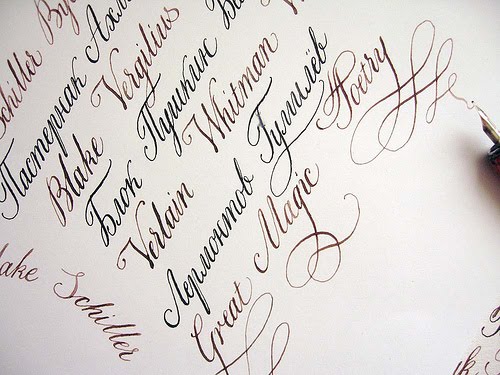 Schiller By
Пастернак Ахм
Blake Vergilius
Блок Пушкин
Verlain Whitman
Лермонтов Гумилёв
Great Magic Poetry
ake Schiller